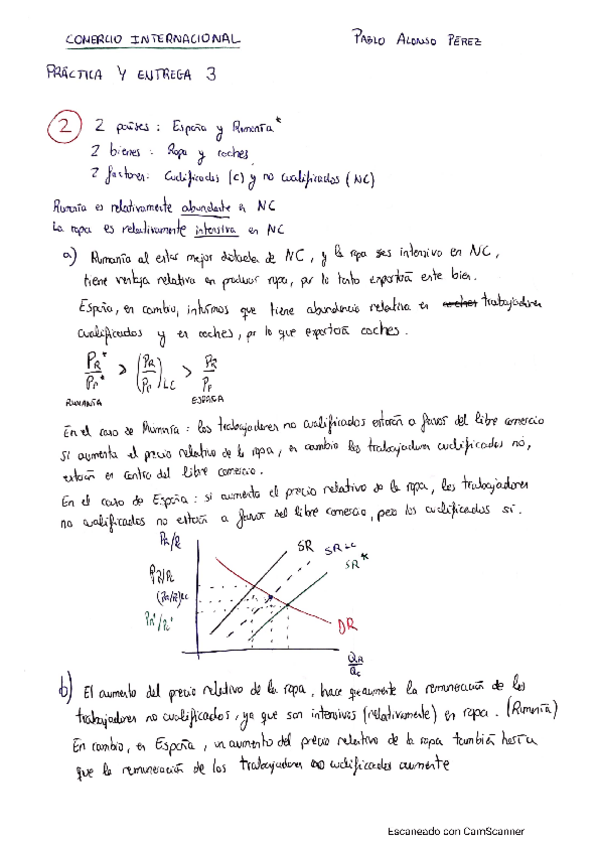 COMERCIO INTERNACIONAL
PABLO ALONSO PÉREZ
PRÁCTICA Y ENTREGA 3
2 2 países : España y Rumanía*
2 bienes : Ropa y coches
2 factores: Cualificados (C) y no cualificados (NC)
Rumanía es relativamente abundante en NC
La ropa es relativamente intensiva en NC
a) Rumanía al estar mejor dotada de NC, y la ropa ser intensivo en NC,
tiene ventaja relativa en producir ropa, por lo tanto exportará este bien.
España, en cambio, intuimos que tiene abundancia relativa en trabajadores
cualificados y en coches, por lo que exportará coches.
PR*/PC* > (PR/PC)LC > PR/PC
RUMANÍA ESPAÑA
En el caso de Rumanía : los trabajadores no cualificados estarán a favor del libre comercio
si aumenta el precio relativo de la ropa, en cambio los trabajadores cualificados no,
estarán en contra del libre comercio.
En el caso de España : si aumenta el precio relativo de la ropa, los trabajadores
no cualificados no estarán a favor del libre comercio, pero los cualificados si.
SR SR LC
SR*
DR
QR/QC
b) El aumento del precio relativo de la ropa, hace que aumente la remuneración de los
trabajadores no cualificados, ya que son intensivos (relativamente) en ropa. (Rumanía)
En cambio, en España, un aumento del precio relativo de la ropa también haría
que la remuneración de los trabajadores cualificados aumente
Escaneado con CamScanner